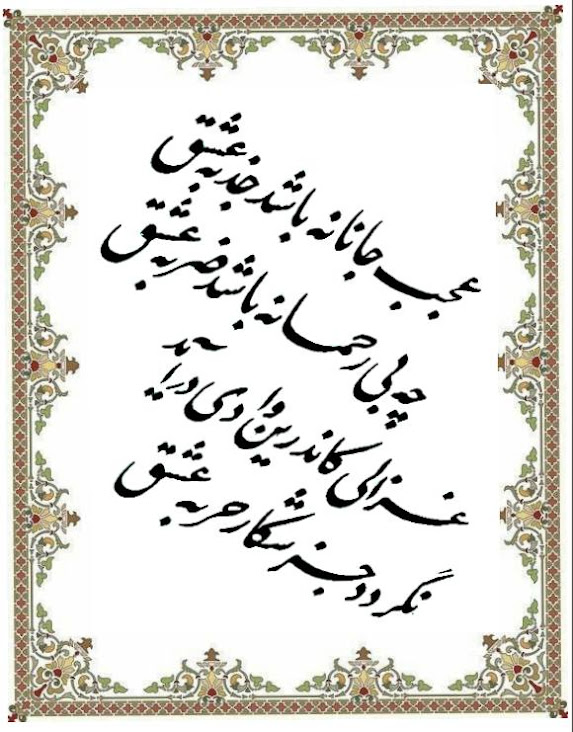 عجب جانانه باشد جذبه عشق
چه بی رحمانه باشد ضربه عشق
غزالی کاندرین وادی درآید
نگردد جز شکار حربه عشق